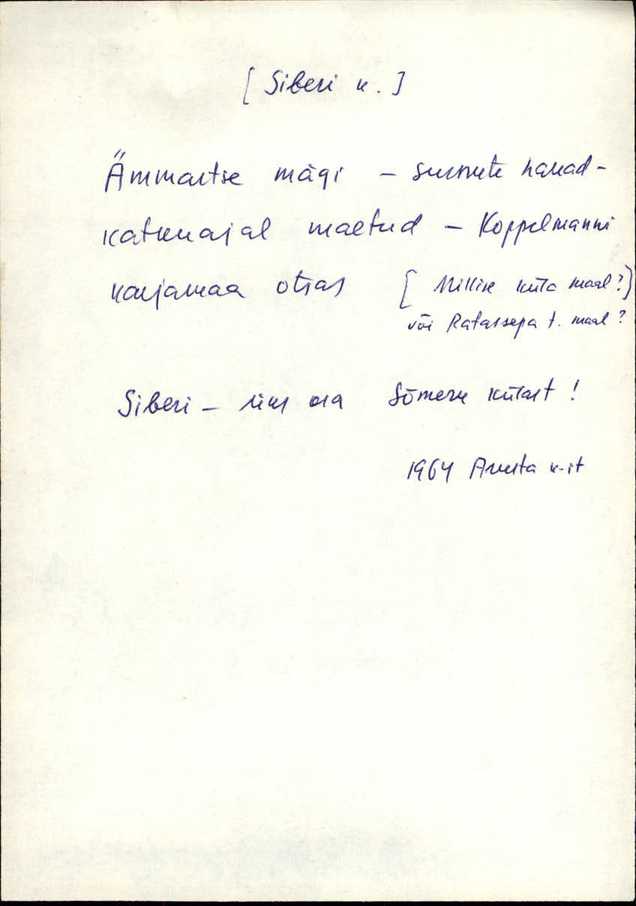 [ Siberi k. ]
Ämmaitse mägi – surnute hauad –
katkuajal maetud – Koppelmanni
karjamaa otsas [ Mikise küla maal ? )
või Ratassepa t. maal ?
Siberi – üks osa Sõmeru külast !
1964 k-it